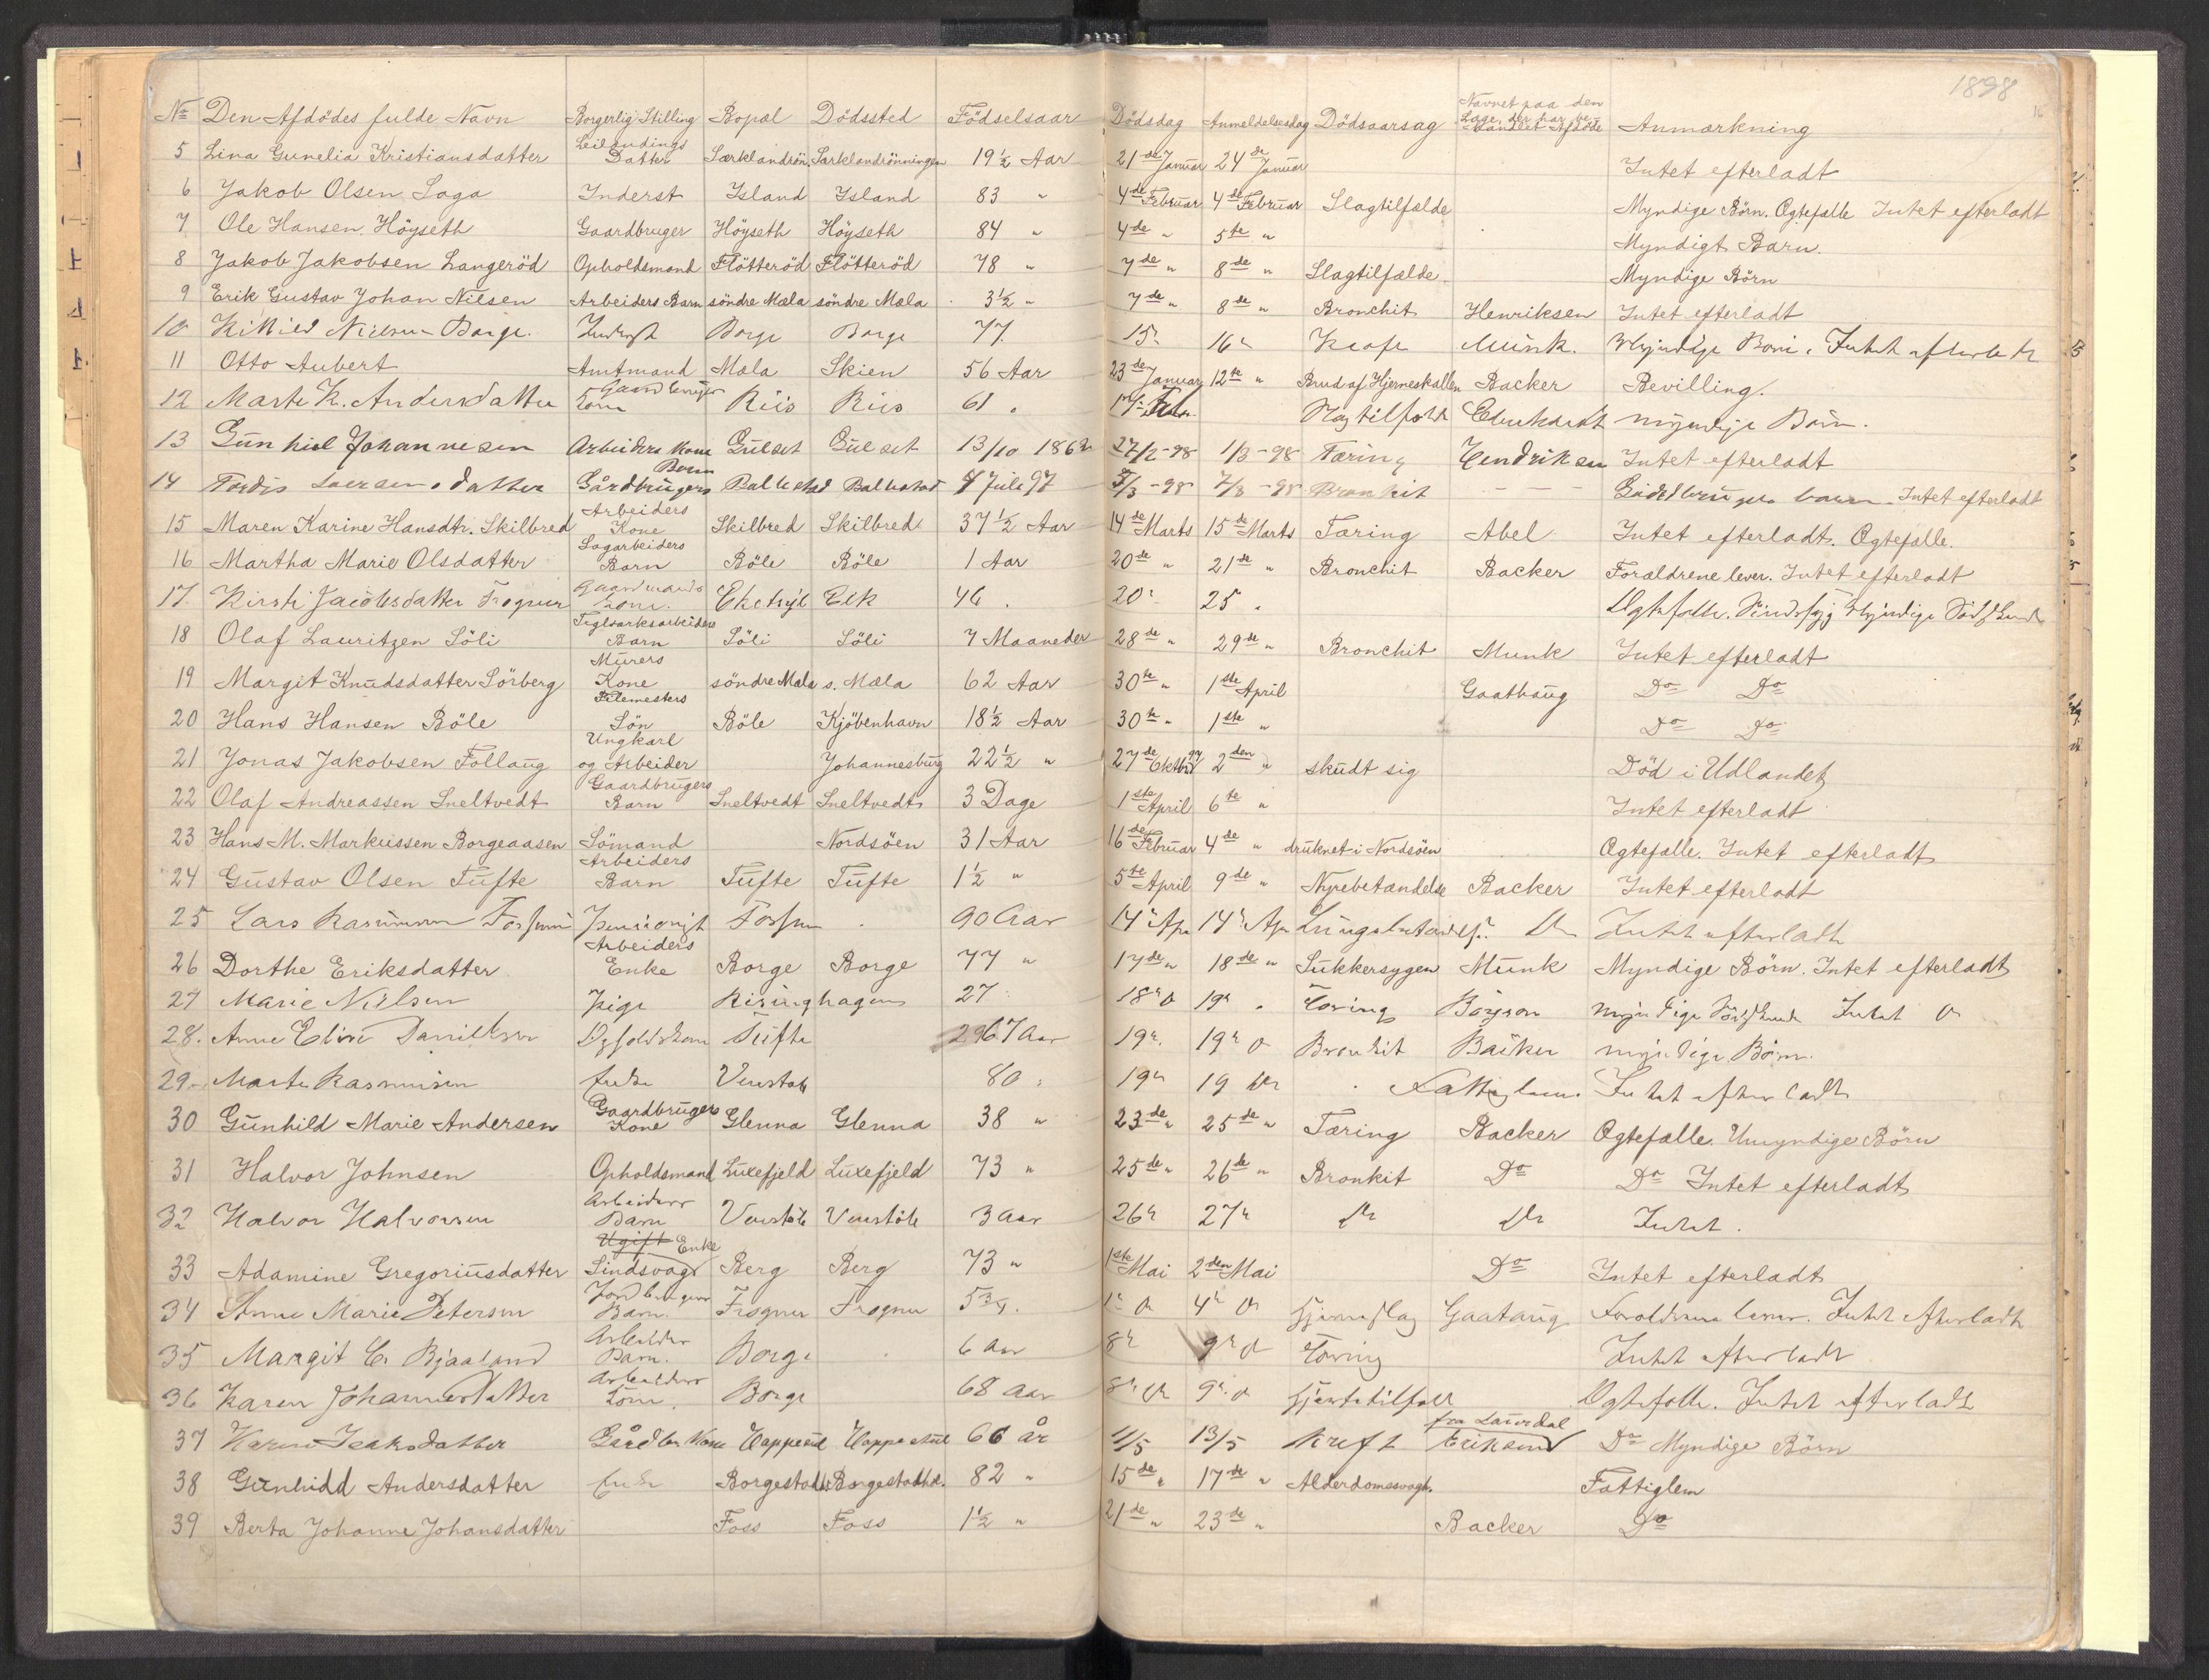 1898
16
No Den Afdödes fulde Navn Borgerlig Stilling Bopæl Dödssted Födselsaar Dödsdag Anmeldelsesdag Dödsaarsag Navnet paa den Læge, der har behandlet Afdöde Anmærkning
5 Lina Gunelia Kristiansdatter Leilændings Datter Særklandrön. Særklandrönningen 19 1/2 Aar 21de Januar 24de Januar Intet efterladt
6 Jakob Olsen Saga Inderst Island Island 83 " 4de Februar 4de Februar Slagtilfælde Myndige Börn. Ægtefælle Intet efterladt
7 Ole Hansen Höyseth Gaardbruger Höyseth Höyseth 84 " 4de " 5te " Myndigt Barn.
8 Jakob Jakobsen Langeröd Opholdsmand Flötteröd Flötteröd 78 " 7de " 8de " Slagtilfælde. Myndige Börn
9 Erik Gustav Johan Nilsen Arbeiders Barn söndre Mæla söndre Mæla 3 1/2 " 7de " 8de " Bronchit Henriksen Intet efterladt
10 Kittild Nielsen Borge. Inderst Borge Borge 77. 15. 16 Munk. Myndige Börn. Intet efterladt
11 Otto Aubert Amtmand Mæla Skien 56 Aar 23de Januar 12te " Brud af Hjerneskallen Backer Bevilling.
12 Marte K. Andersdatter Gaardbruger Kone Riis Riis 61 " 17 Slagtilfælde myndige Börn.
13 Gunhild Johannesen Arbeiders Kone Gulset Gulset 13/10 1862 27/2-98 1/3-98 Tæring Hendriksen Intet efterladt
14 Tordis Larsensdatter Gårdbrugers Barn Ballestad Ballestad 7 Juli 97 5/3-98 7/3-98 Bronkit — — — Gårdbrugers barn. Intet efterladt
15 Maren Karine Hansdtr. Skilbred Arbeiders Kone Skilbred Skilbred 37 1/2 Aar 14de Marts 15de Marts Tæring Abel Intet efterladt. Ægtefælle.
16 Martha Marie Olsdatter Sagarbeiders Barn Böle Böle 1 Aar 20de " 21de " Bronchit Backer Forældrene lever. Intet efterladt
17. Kirsti Jacobsdatter Frogner Gaardmands Kone. Ek 46 . 20 25 . Ægtefælle. Sindssyg Myndige
18 Olaf Lauritzen Söli Teglværksarbeiders Barn Söli Söli 7 Maaneder 28de " 29de " Bronchit Munk Intet efterladt
19 Margit Knudsdatter Sörberg Murers Kone söndre Mæla s. Mæla 62 Aar 30te " 1ste April Gaathaug Do Do
20 Hans Hansen Böle Filemesters Sön Böle Kjöbenhavn 18 1/2 Aar 30te " 1ste " Do Do
21 Jonas Jakobsen Follaug Ungkarl og Arbeider Johannesburg 22 1/2 " 27de Oktbr 97 2den " skudt sig Död i Udlandet
22 Olaf Andreassen Sneltvedt Gaardbrugers Barn Sneltvedt Sneltvedt 3 Dage 1ste April 6te " Intet efterladt
23 Hans M. Markussen Borgeaasen Sömand Nordsöen 31 Aar 16de Februar 4de " druknet i Nordsöen Ægtefælle. Intet efterladt
24 Gustav Olsen Tufte Arbeiders Barn Tufte Tufte 1 1/2 " 5te April 9de " Nyrebetændelse Backer Intet efterladt
25 Lars Rasmussen Fossum Pensionist Fossum 90 Aar 14 Apr 14 Apr Lungebetændelse Do Intet efterladt
26 Dorthe Eriksdatter Arbeiders Enke Borge Borge 77 " 17de " 18de " Sukkersygen Munk Myndige Börn. Intet efterladt
27 Marie Nilsen Pige Risinghagen 27 18 19 Tæring myndige Söskende Intet
28. Anne Eline Danielsen Opholdskone Tufte 67 Aar 19 19 Bronkit Backer myndige Börn.
29. Marte Rasmussen Enke Venstöb 80 19 19 Do Fattiglem. Intet efterladt
30 Gunhild Marie Andersen Gaardbrugers Kone Glenna Glenna 38 " 23de " 25de " Tæring Backer Ægtefælle. Umyndige Börn
31 Halvor Johnsen Opholdsmand Luxefjeld Luxefjeld 73 " 25de " 26de " Bronkit Do Do Intet efterladt
32 Halvor Halvorsen Arbeiders Barn Venstöb Venstöb 3 Aar 26 27 Do Do Intet.
33 Adamine Gregoriusdatter Ugift Enke Sindsvag Berg Berg 73 " 1ste Mai 2den Mai Do Intet efterladt
34 Anne Marie Petersen Jordbrugers Barn. Frogner Frogner 5 3/4. 1 Do 4 Do Hjerneslag Gaataug Forældrene lever. Intet efterladt
35 Margit C. Bjaaland Arbeider Barn. Borge 6 Aar 8 9 Tæring Intet efterladt
36 Karen Johannesdatter Arbeiders Kone. Borge 68 Aar 8 Do 9 Hjertetilfælde Ægtefælle. Intet efterladt
37 Karen Isaksdatter Gårdbr Kone Hoppestul Hoppestul 66 år 11/5 13/5 Kreft Eriksen fra Laurdal Do Myndige Börn
38 Gunhild Andersdatter Enke Borgestad Borgestadhd. 82 " 15de " 17de " Alderdomssvagh. Fattiglem
39 Berta Johanne Johansdatter Foss Foss 1 1/2 " 21de " 23de " Backer Do